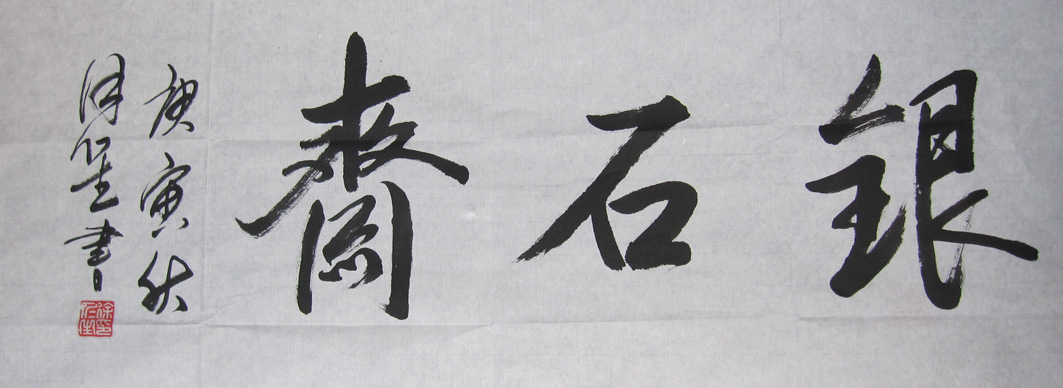 銀石齋
庚寅秋
徐書